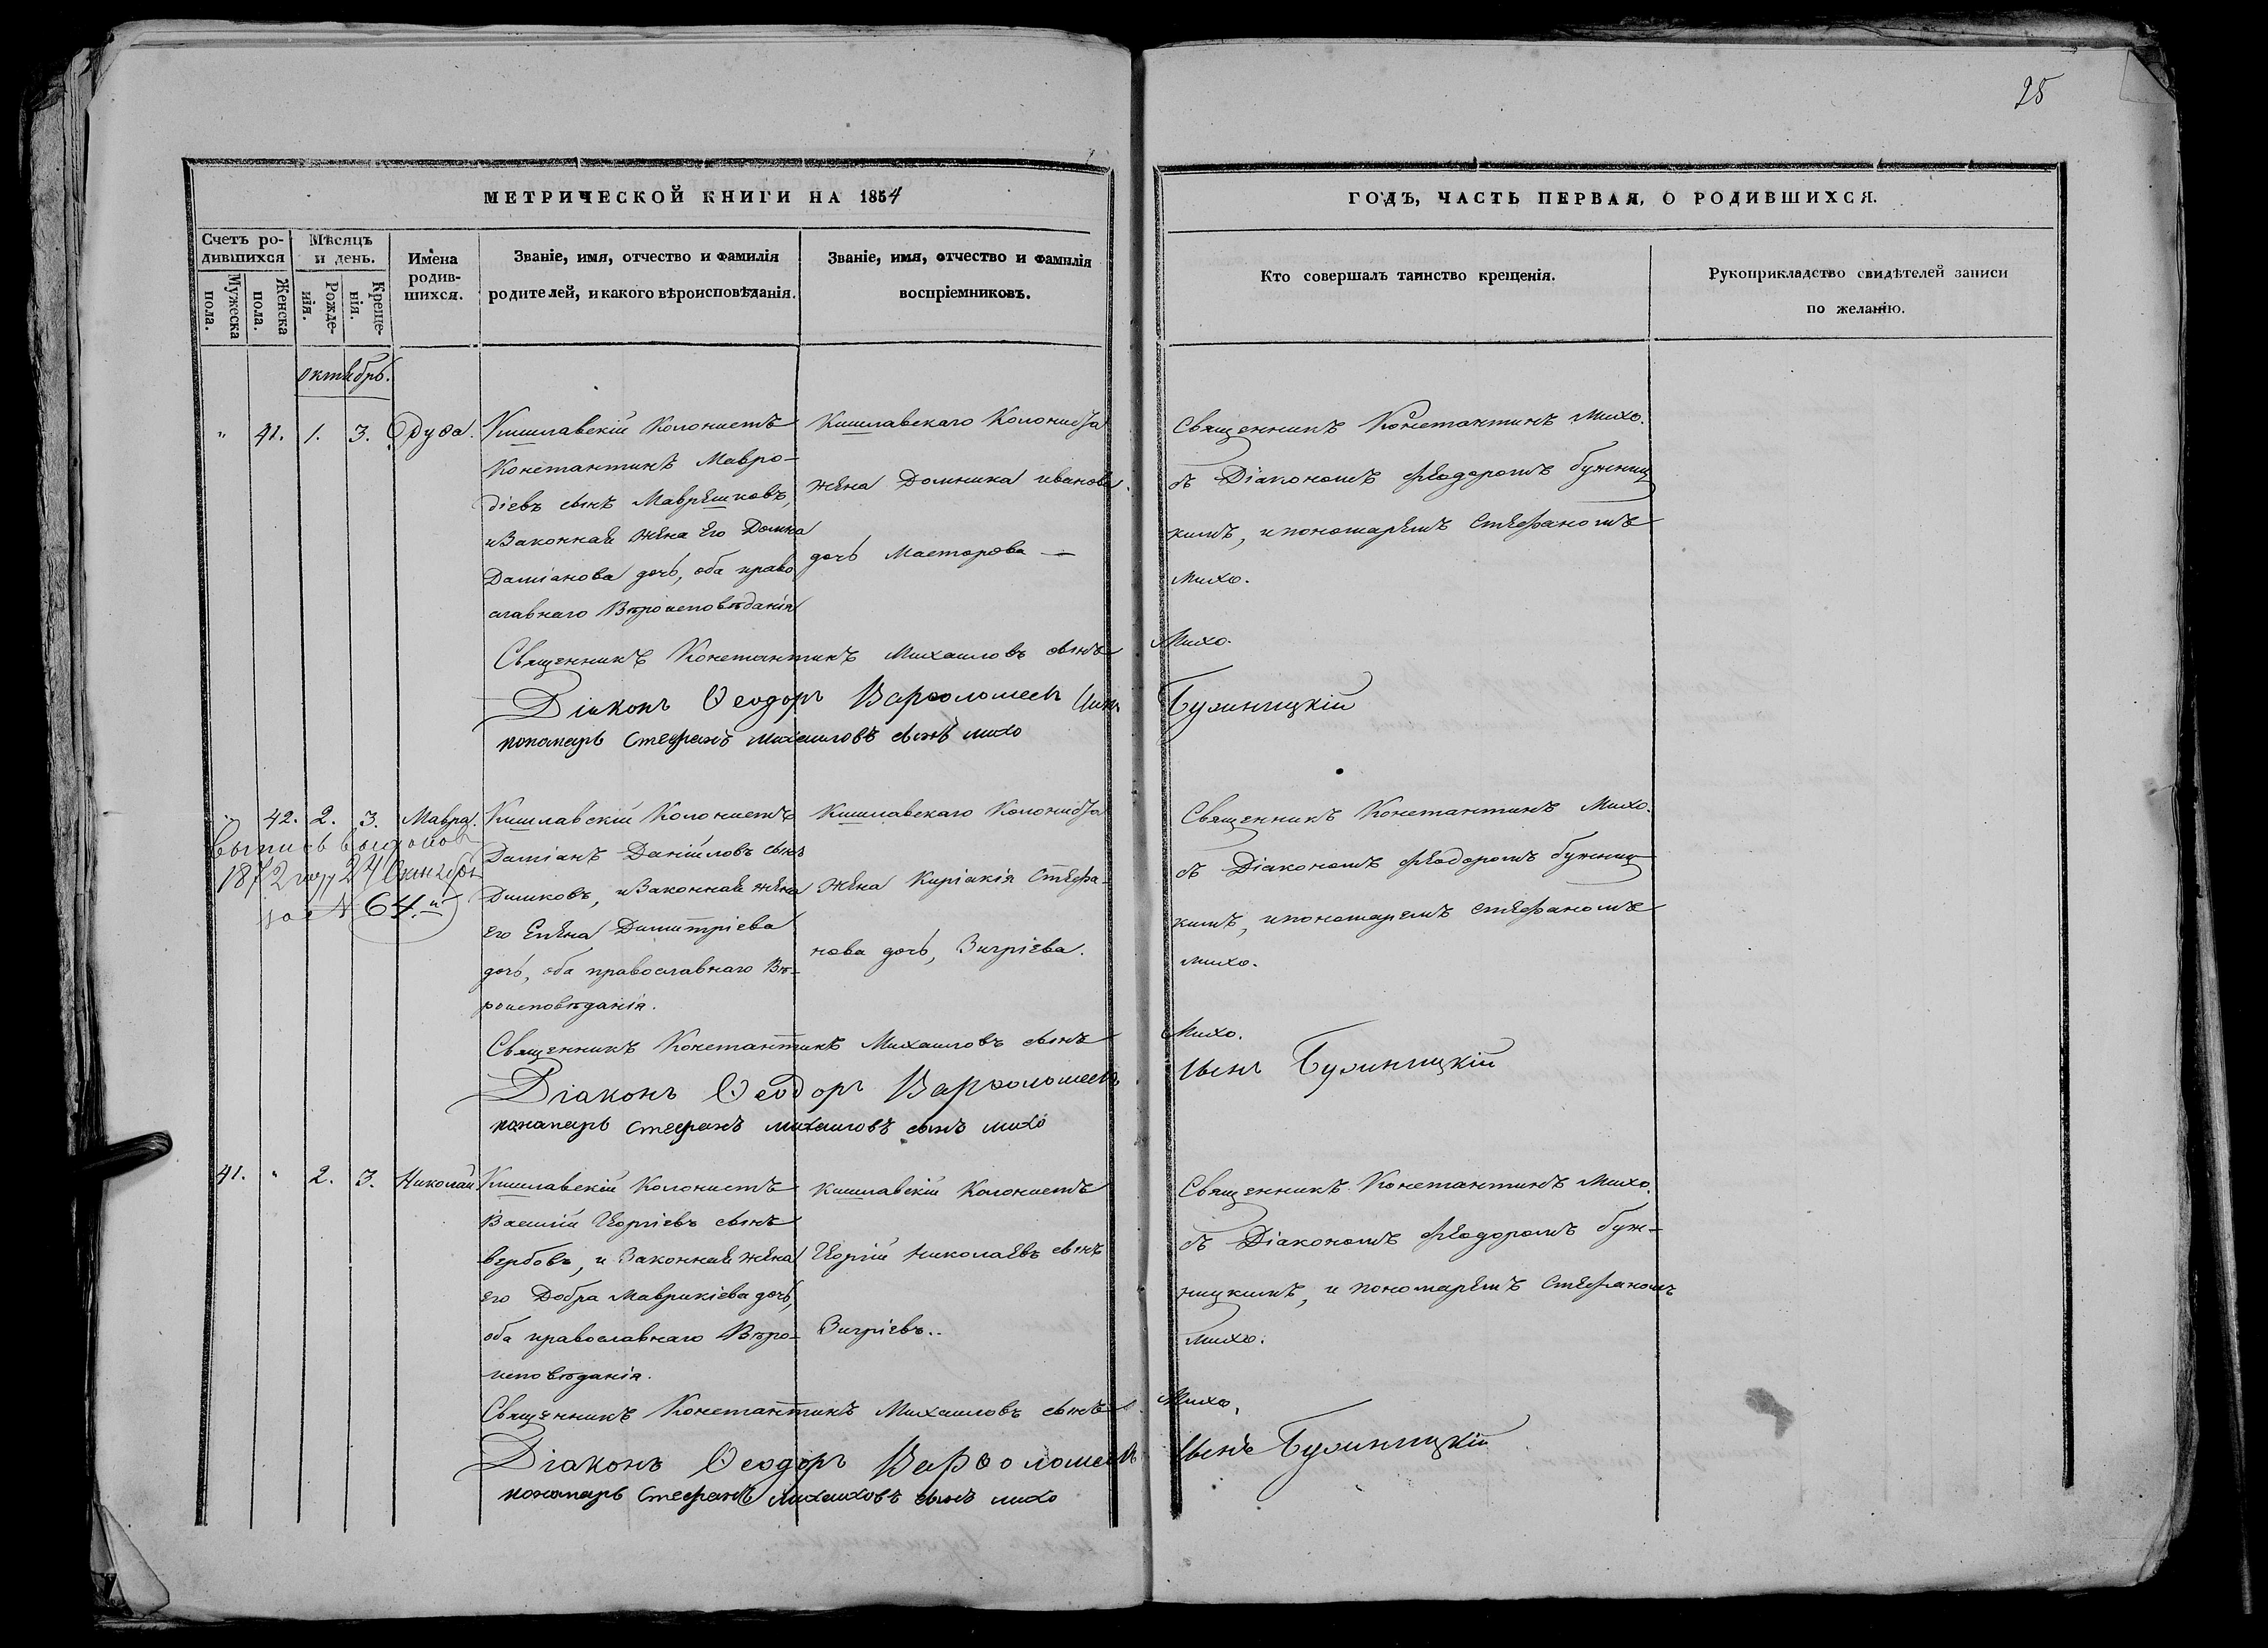 28
МЕТРИЧЕСКОЙ КНИГИ НА 1854
ГОДЪ, ЧАСТЬ ПЕРВАЯ, О РОДИВШИХСЯ.
Счетъ ро-
дившихся
Мужеска
пола.
Женска
пола.
Мѣсяцъ
и день.
Рожде-
нія.
Креще-
нія.
Имена
родив-
шихся.
Званіе, имя, отчество и фамилія
родителей, и какого вѣроисповѣданія.
Званіе, имя, отчество и фамилія
воспріемниковъ.
Кто совершалъ таинство крещенія.
Рукоприкладство свидѣтелей записи
по желанію.
октябрь.
" 41. 1. 3.
Кишлавскій Колонистъ
Константинъ Мавро-
діевъ сынъ Маврешковъ,
и Законная жена Его Домна
Даміанова дочь, оба право
славнаго Вѣроисповѣданія
Кишлавскаго Колониста
жена Домника иванова
дочь Масторова —
Священникъ Константинъ Михо.
съ Діакономъ Феодоромъ Бужниц
кимъ, и пономаремъ Стефаномъ
Михо.
Священникъ Константинъ Михаиловъ сынъ Михо.
Діаконъ Ѳеодоръ Варѳоломеевъ сынъ Бужницкій
пономарь Стефанъ михаиловъ сынъ михо
" 42. 2. 3. Мавра.
выпись выдана
1872 году 24 Октября
за № 64.й
Кишлавскій Колонистъ
Даміанъ Даніиловъ сынъ
Димковъ, и Законная жена
его Елена Димитріева
дочь, оба православнаго Вѣ-
роисповѣданія.
Кишлавскаго Колониста
жена Киріакія Стефа-
нова дочь, Зигріева.
Священникъ Константинъ Михо.
съ Діакономъ Феодоромъ Бужниц
кимъ, и пономаремъ Стефаномъ
михо.
Священникъ Константинъ Михаиловъ сынъ Михо.
Діаконъ Ѳеодоръ Варѳоломеевъ сынъ Бужницкій
пономарь Стефанъ михаиловъ сынъ михо
41. " 2. 3. Николай
Кишлавскій Колонистъ
Василій Георгіевъ сынъ
вербовъ, и Законная жена
его Добра Маврикіева дочь,
оба православнаго Вѣро-
исповѣданія.
Кишлавскій Колонистъ
Георгій Николаевъ сынъ
Зигріевъ..
Священникъ Константинъ Михо.
съ Діакономъ Феодоромъ Буж-
ницкимъ, и пономаремъ Стефаномъ
михо.
Священникъ Константинъ Михаиловъ сынъ Михо.
Діаконъ Ѳеодоръ Варѳоломеевъ сынъ Бужницкій
пономарь Стефанъ михаиловъ сынъ михо